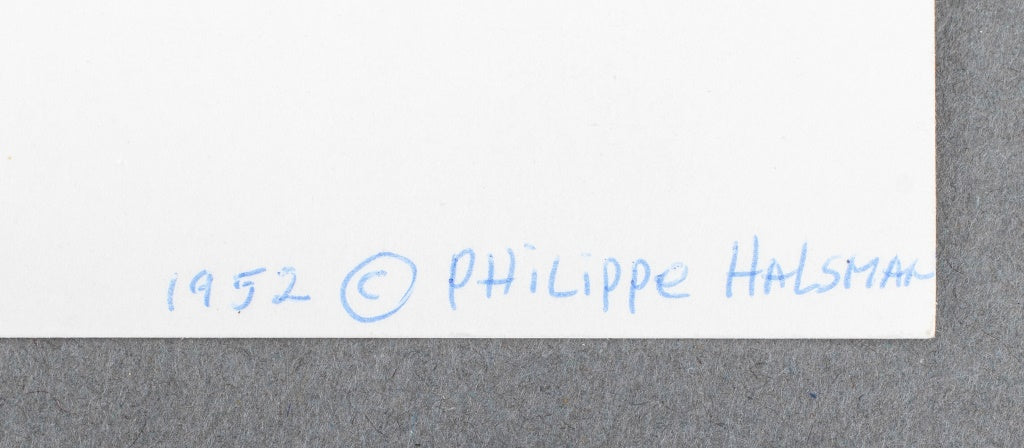 1952 © PHiLippe HALSMAN